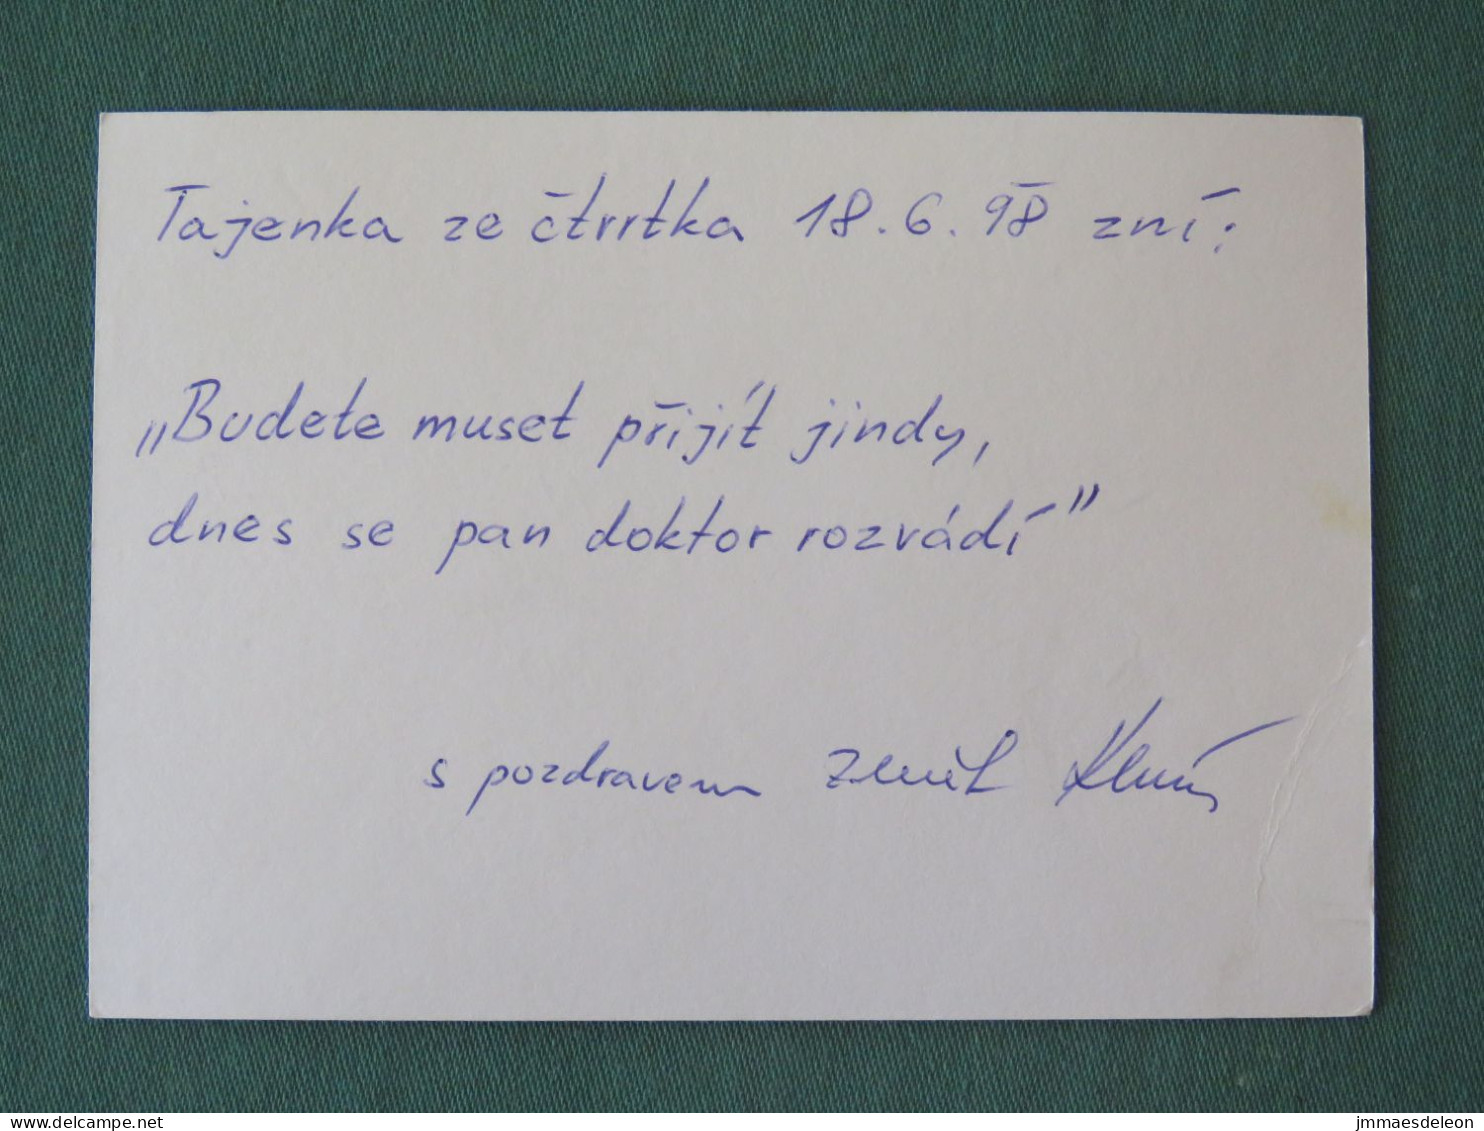 Tajenka ze čtvrtka 18.6.98 zní:
„Budete muset přijít jindy,
dnes se pan doktor rozvádí"
s pozdravem
delcampe.net
jmmaesdeleon